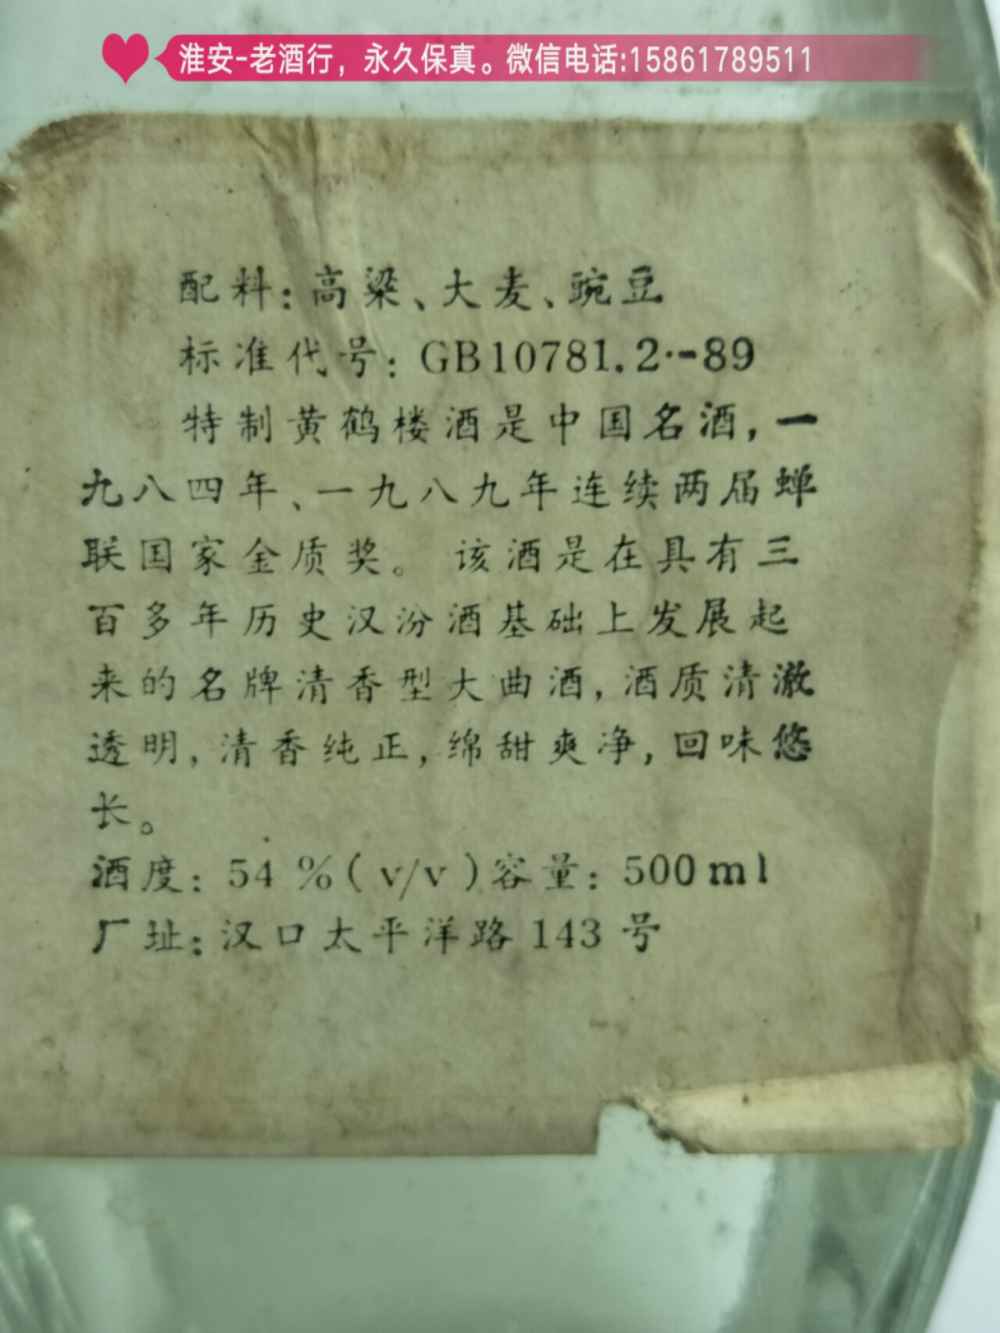 淮安-老酒行，永久保真。微信电话:15861789511
配料：高粱、大麦、豌豆
标准代号：GB10781.2--89
特制黄鹤楼酒是中国名酒，一
九八四年、一九八九年连续两届蝉
联国家金质奖。该酒是在具有三
百多年历史汉汾酒基础上发展起
来的名牌清香型大曲酒，酒质清澈
透明，清香纯正，绵甜爽净，回味悠
长。
酒度：54 %(v/v)容量：500ml
厂址：汉口太平洋路143号